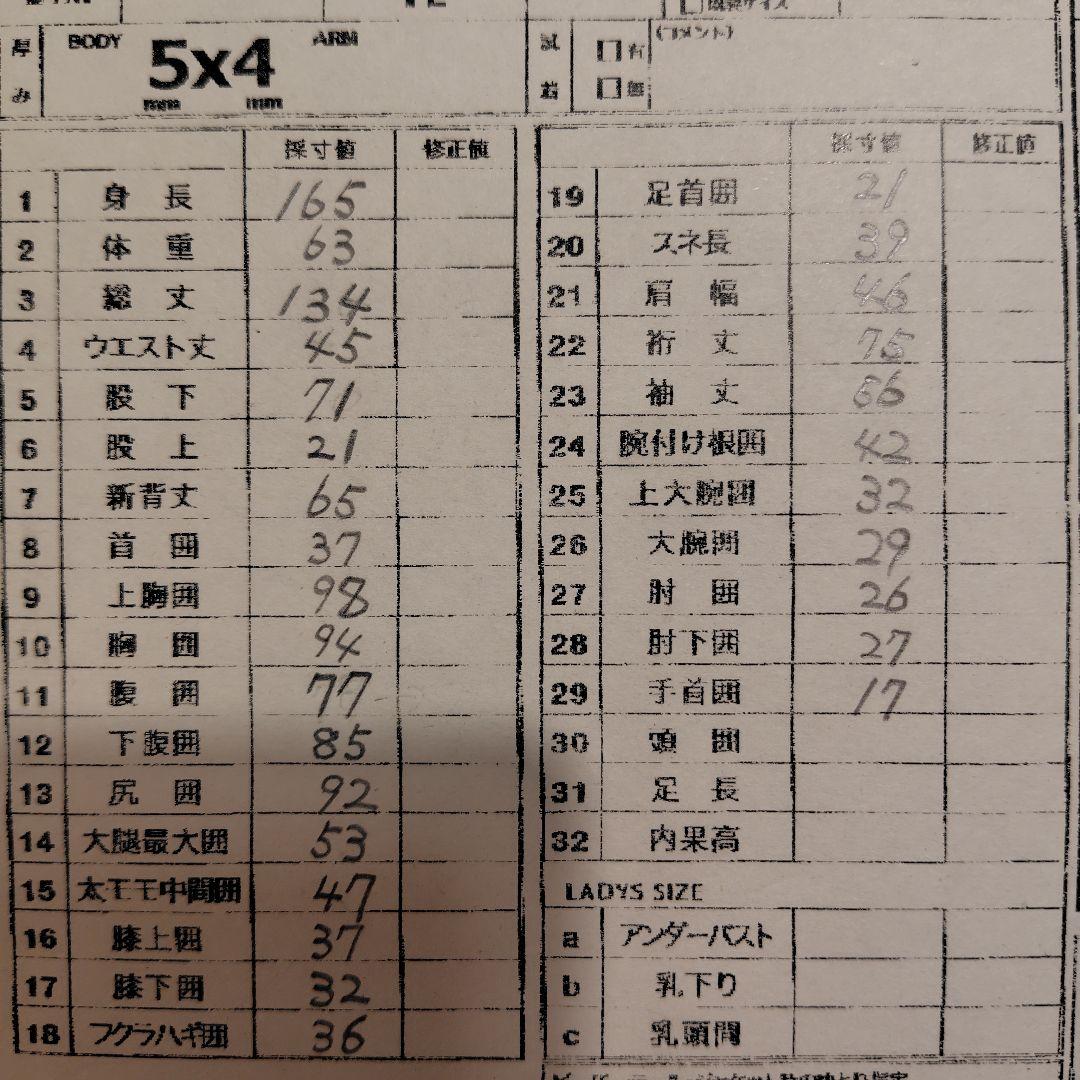 厚み BODY 5x4 ARM
mm mm
試着 □有 (コメント)
□無
採寸値 修正値
1 身長 165
2 体重 63
3 総丈 134
4 ウエスト丈 45
5 股下 71
6 股上 21
7 新背丈 65
8 首囲 37
9 上胸囲 98
10 胸囲 94
11 腹囲 77
12 下腹囲 85
13 尻囲 92
14 大腿最大囲 53
15 太モモ中間囲 47
16 膝上囲 37
17 膝下囲 32
18 フクラハギ囲 36
採寸値 修正値
19 足首囲 21
20 スネ長 39
21 肩幅 46
22 裄丈 75
23 袖丈 56
24 腕付け根囲 42
25 上大腕囲 32
26 大腕囲 29
27 肘囲 26
28 肘下囲 27
29 手首囲 17
30 頭囲
31 足長
32 内果高
LADYS SIZE
a アンダーバスト
b 乳下り
c 乳頭間